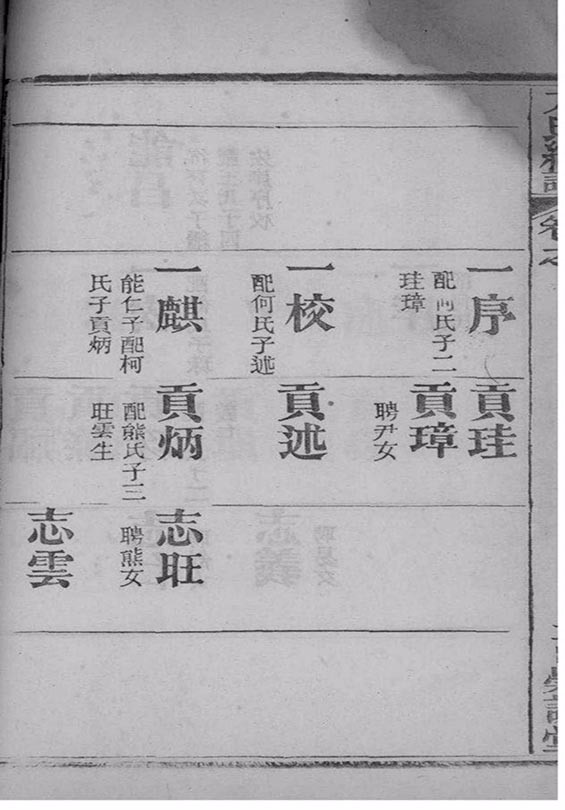 一序
配何氏子二
珪璋
貢珪
貢璋
聘尹女
一校
配何氏子述
貢述
一麒
能仁子配柯
氏子貢炳
貢炳
配熊氏子三
旺雲生
志旺
聘熊女
志雲